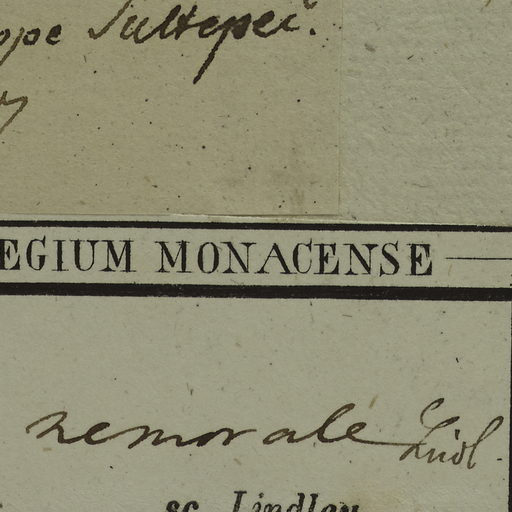 ope Sultepec.
EGIUM MONACENSE
nemorale Lindl.
sc. Lindley